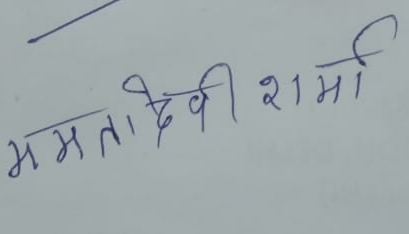 ममता देवी शर्मा